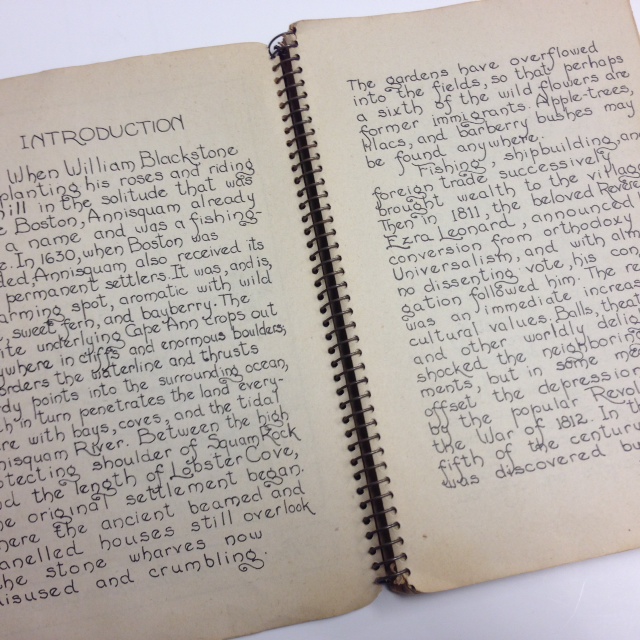 INTRODUCTION
When William Blackstone
planting his roses and riding
hill in the solitude that was
Boston, Annisquam already
a name and was a fishing-
In 1630, when Boston was
Annisquam also received its
permanent settlers. It was, and is
spot, aromatic with wild
sweet fern, and bayberry. The
underlying Cape Ann crops out
in cliffs and enormous boulders,
the waterline and thrusts
points into the surrounding ocean,
in turn penetrates the land every-
with bays, coves, and the tidal
River. Between the high
shoulder of Squam Rock
the length of Lobster Cove,
original settlement began.
the ancient beamed and
houses still overlook
the stone wharves now
disused and crumbling.
The gardens have overflowed
into the fields, so that perhaps
a sixth of the wild flowers are
former immigrants. Apple-trees,
lilacs, and barberry bushes may
be found anywhere.
Fishing, shipbuilding, an
foreign trade successively
brought wealth to the villag
Then in 1811, the beloved Revere
Ezra Leonard, announced
conversion from orthodoxy
Universalism, and with alm
no dissenting vote, his con
gation followed him. The re
was an immediate increas
cultural values. Balls, thea
and other worldly deligh
shocked the neighborin
ments, but in some me
offset the depression
by the popular Revol
the War of 1812. In th
fifth of the century
was discovered by